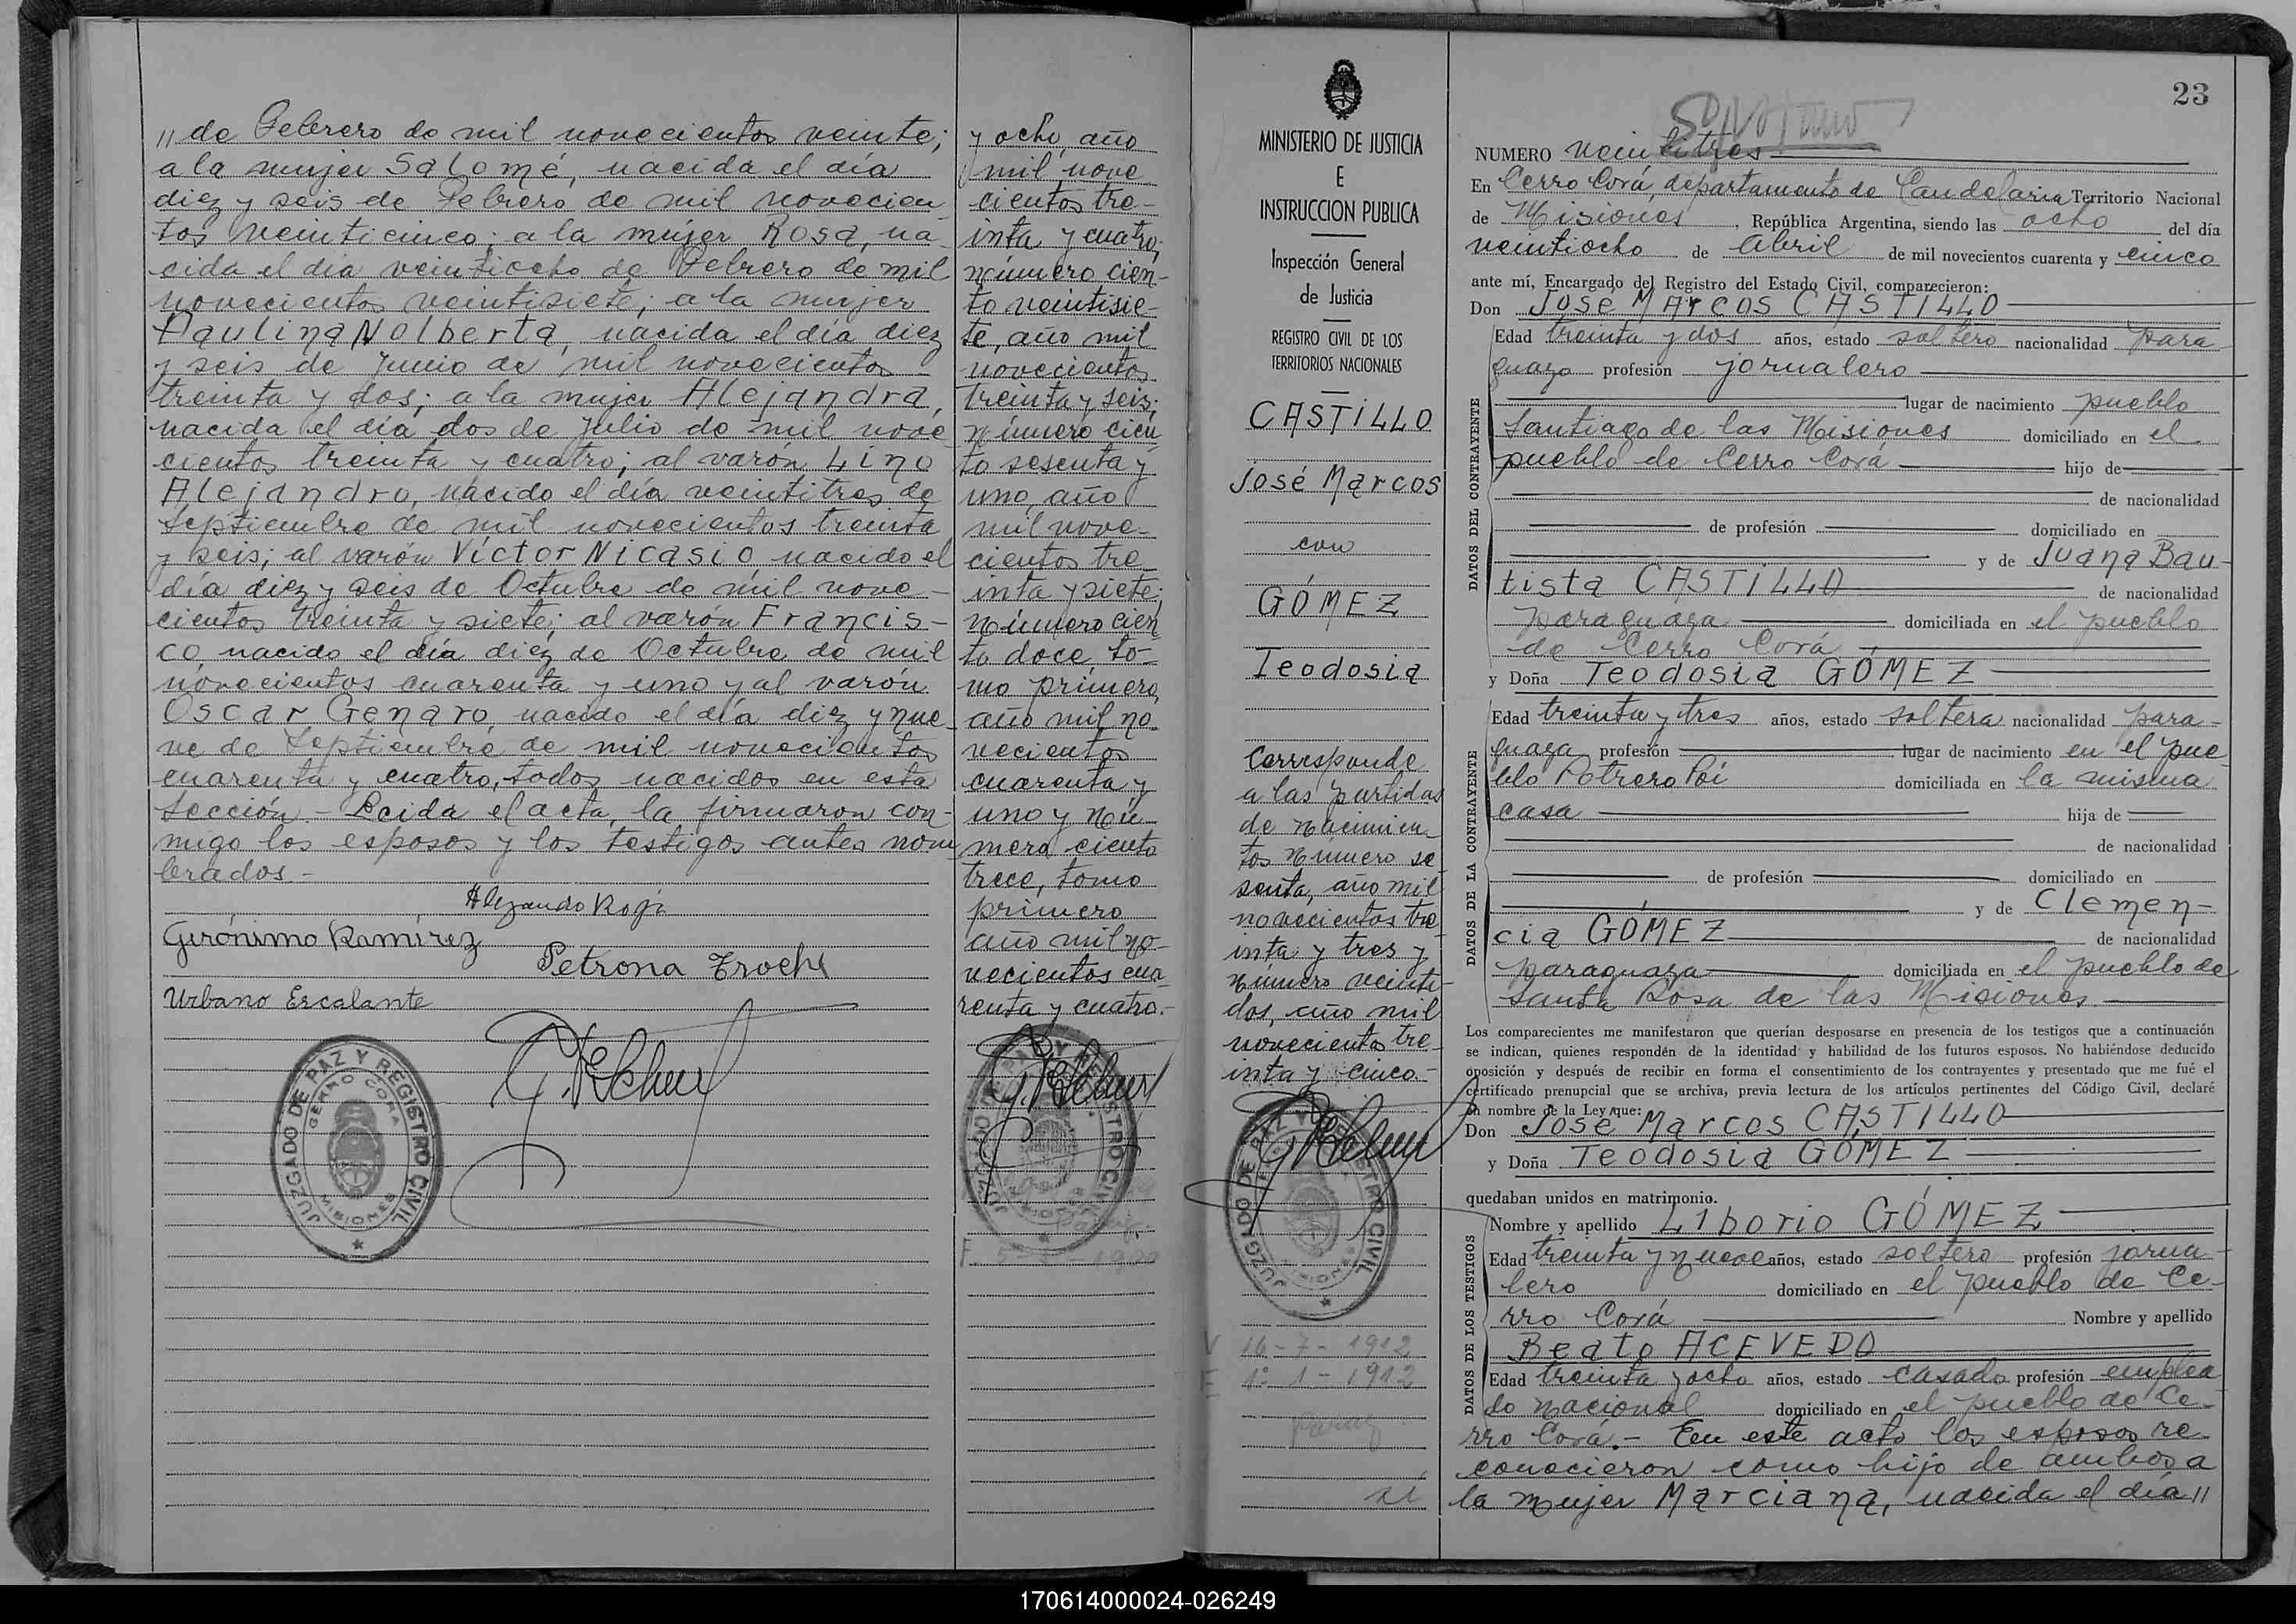 " de Febrero de mil novecientos veinte;
a la mujer Salomé, nacida el día
diez y seis de Febrero de mil novecien
tos veinticinco; a la mujer Rosa, na-
cida el día veintiocho de Febrero de mil
novecientos veintisiete; a la mujer
Paulina Nolberta, nacida el día diez
y seis de Junio de mil novecientos
treinta y dos; a la mujer Alejandra,
nacida el día dos de Julio de mil nove
cientos treinta y cuatro; al varón Lino
Alejandro, nacido el día veintitres de
Septiembre de mil novecientos treinta
y seis; al varón Víctor Nicasio nacido el
día diez y seis de Octubre de mil nove-
cientos treinta y siete; al varón Francis-
co, nacido el día diez de Octubre de mil
novecientos cuarenta y uno y al varón
Oscar Genaro, nacido el día diez y nue
ve de Septiembre de mil novecientos
cuarenta y cuatro, todos nacidos en esta
Sección.- Leida el acta, la firmaron con-
migo los esposos y los testigos antes nom
brados.-
Alejandro Roja
Gerónimo Ramírez
Petrona Troche
Urbano Escalante
JUZGADO DE PAZ Y REGISTRO CIVIL
CERRO CORA
MISIONES
y ocho, año
mil nove
cientos tre-
inta y cuatro;
número cien-
to veintisie-
te, año mil
novecientos
treinta y seis;
número cien
to sesenta y
uno, año
mil nove-
cientos tre
inta y siete;
número cien
to doce, to-
mo primero,
año mil no
vecientos
cuarenta y
uno y nú-
mero ciento
trece, tomo
primero
año mil no-
vecientos cua
renta y cuatro.-
MINISTERIO DE JUSTICIA
E
INSTRUCCION PUBLICA
Inspección General
de Justicia
REGISTRO CIVIL DE LOS
TERRITORIOS NACIONALES
CASTILLO
José Marcos
con
GÓMEZ
Teodosia
Corresponde
a las partidas
de nacimien-
tos número se
senta, año mil
novecientos tre
inta y tres y
número veinti-
dos, año mil
novecientos tre-
inta y cinco.-
JUZGADO DE PAZ Y REGISTRO CIVIL
MISIONES
V 16-7-1912
E 1º 1-1912
Parag.
23
NUMERO veintitres
En Cerro Corá, departamento de Candelaria Territorio Nacional
de Misiones, República Argentina, siendo las ocho del día
veintiocho de Abril de mil novecientos cuarenta y cinco
ante mí, Encargado del Registro del Estado Civil, comparecieron:
Don José Marcos CASTILLO
DATOS DEL CONTRAYENTE
Edad treinta y dos años, estado soltero nacionalidad para-
guaya profesión jornalero
lugar de nacimiento pueblo
Santiago de las Misiones domiciliado en el
pueblo de Cerro Corá hijo de
de nacionalidad
de profesión domiciliado en
y de Juana Bau-
tista CASTILLO de nacionalidad
paraguaya domiciliada en el pueblo
de Cerro Corá
y Doña Teodosia GÓMEZ
DATOS DE LA CONTRAYENTE
Edad treinta y tres años, estado soltera nacionalidad para-
guaya profesión lugar de nacimiento en el pue
blo Potrero Poí domiciliada en la misma
casa hija de
de nacionalidad
de profesión domiciliado en
y de Clemen-
cia GÓMEZ de nacionalidad
paraguaya domiciliada en el pueblo de
Santa Rosa de las Misiones
Los comparecientes me manifestaron que querían desposarse en presencia de los testigos que a continuación
se indican, quienes respondén de la identidad y habilidad de los futuros esposos. No habiéndose deducido
oposición y después de recibir en forma el consentimiento de los contrayentes y presentado que me fué el
certificado prenupcial que se archiva, previa lectura de los artículos pertinentes del Código Civil, declaré
en nombre de la Ley que:
Don José Marcos CASTILLO
y Doña Teodosia GÓMEZ
quedaban unidos en matrimonio.
DATOS DE LOS TESTIGOS
Nombre y apellido Liborio GÓMEZ
Edad treinta y nueve años, estado soltero profesión jorna-
lero domiciliado en el pueblo de Ce-
rro Corá Nombre y apellido
Beato ACEVEDO
Edad treinta y ocho años, estado casado profesión emplea
do nacional domiciliado en el pueblo de Ce-
rro Corá.- En este acto los esposos re-
conocieron como hijo de ambos a
la mujer Marciana, nacida el día "
170614000024-026249